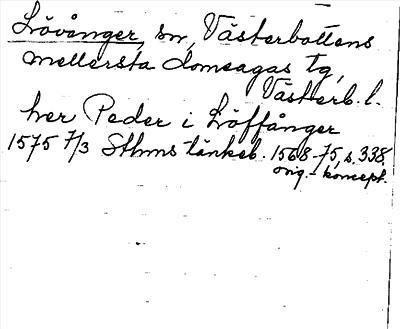 Lövånger, sn, Västerbottens
mellersta domsagas tg,
Västerb. l.
her Peder i Löffånger
1575 7/3 Sthms tänkeb. 1568-75, s. 338.
orig.-koncept.